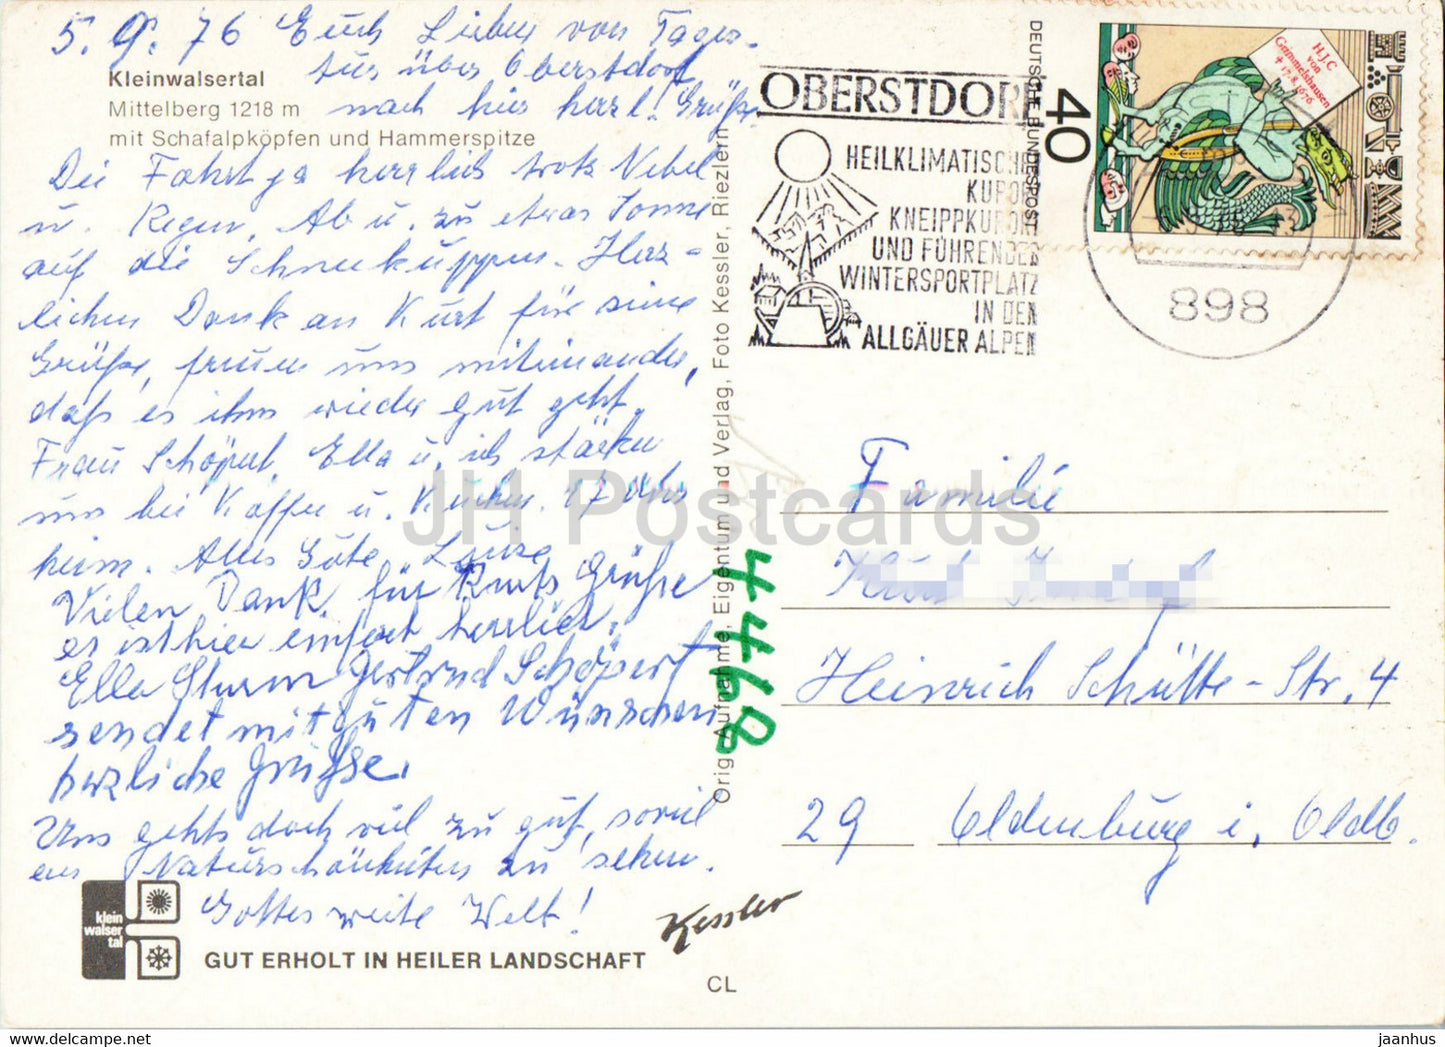 5. 9. 76 Euch Lieben von Tages-
tur über Oberstdorf
nach hier herzl. Grüße.
Kleinwalsertal
Mittelberg 1218 m
mit Schafalpköpfen und Hammerspitze
Die Fahrt ja herrlich trotz Nebel
u. Regen. Ab u. zu etwas Sonne
auf die Schneekuppen. Herz-
lichen Dank an Kurt für seine
Grüße, freuen uns miteinander,
daß es ihm wieder gut geht.
Frau Schöpert, Ella u. ich stärken
uns bei Kaffee u. Kuchen. 17 Uhr
heim. Alles Gute Luise
Vielen Dank für Kurts Grüße
es ist hier einfach herrlich.
Ella Sturm Gertrud Schöpert
sendet mit guten Wünschen
herzliche Grüße.
Uns gehts doch viel zu gut, soviel
an Naturschönheiten zu sehen.
Gottes weite Welt!
klein
walser
tal
GUT ERHOLT IN HEILER LANDSCHAFT
Kessler
CL
Orig. Aufnahme, Eigentum und Verlag, Foto Kessler, Riezlern
4468
OBERSTDORF
HEILKLIMATISCHER
KURORT
KNEIPPKURORT
UND FÜHRENDER
WINTERSPORTPLATZ
IN DEN
ALLGÄUER ALPEN
DEUTSCHE BUNDESPOST
40
H.J.C
von
Grimmelshausen
† 17.8.1676
898
Familie
Heinrich Schütte-Str. 4
29 Oldenburg i. Oldb.
JH Postcards
jaanhus www.hippostcard.com